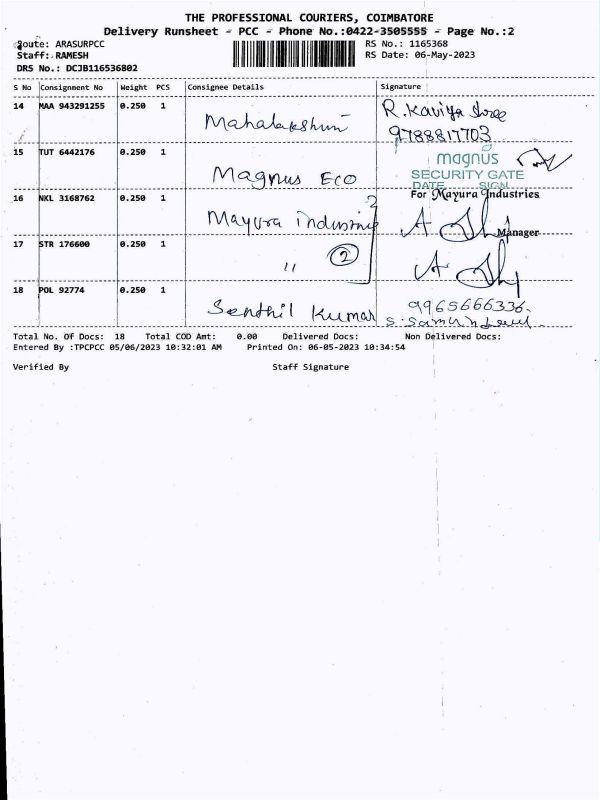 THE PROFESSIONAL COURIERS, COIMBATORE
Delivery Runsheet - PCC - Phone No.:0422-3505555 - Page No.:2
Route: ARASURPCC RS No.: 1165368
Staff: RAMESH RS Date: 06-May-2023
DRS No.: DCJB116536802
S No Consignment No Weight PCS Consignee Details Signature
14 MAA 943291255 0.250 1 Mahalakshmi R. Kaviya Shree
9788817703
15 TUT 6442176 0.250 1 Magnus Eco magnus
SECURITY GATE
DATE SIGN
16 NKL 3168762 0.250 1 Mayura industries For Mayura Industries
Manager
17 STR 176600 0.250 1 " 2
18 POL 92774 0.250 1 Senthil Kumar 9965666336
Total No. Of Docs: 18 Total COD Amt: 0.00 Delivered Docs: Non Delivered Docs:
Entered By :TPCPCC 05/06/2023 10:32:01 AM Printed On: 06-05-2023 10:34:54
Verified By Staff Signature